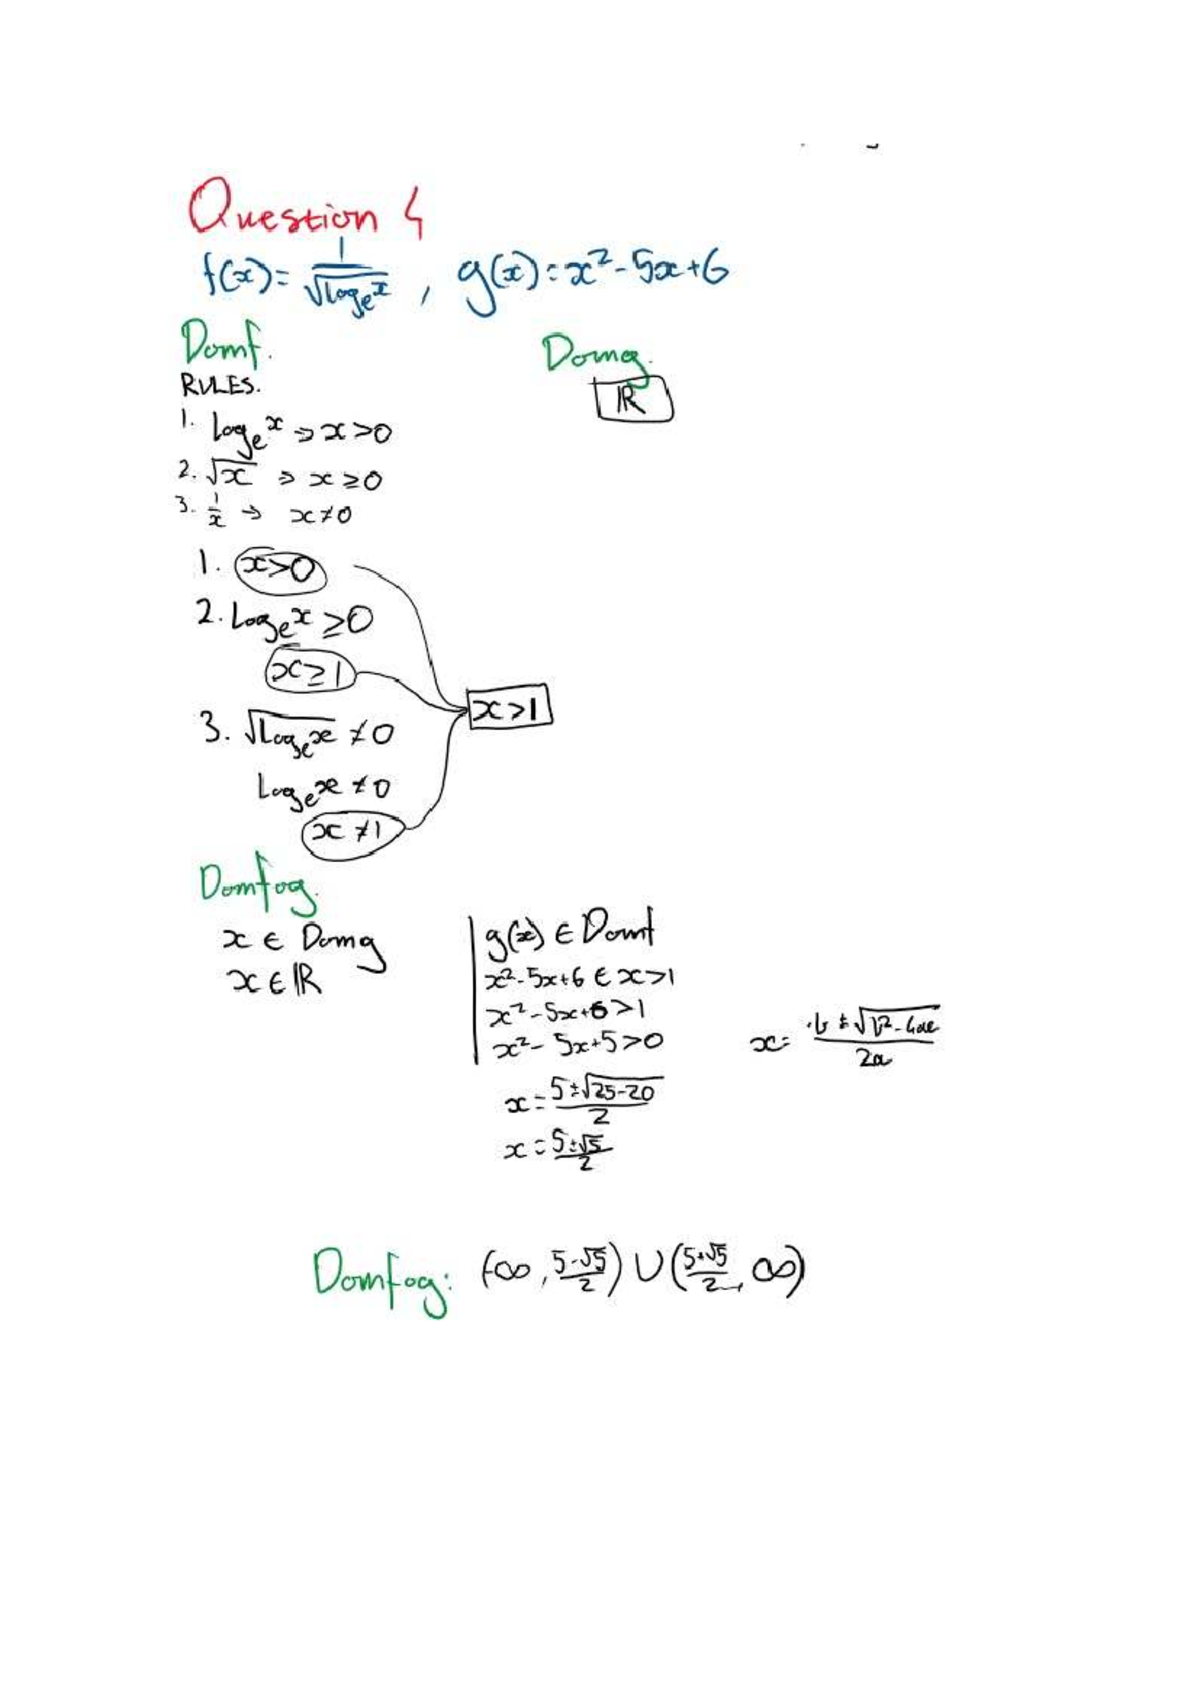 Question 4
f(x) = 1/√(log_e x) , g(x) = x² - 5x + 6
Domf.
Domg.
RULES.
ℝ
1. Log_e x ⇒ x > 0
2. √x ⇒ x ≥ 0
3. 1/x → x ≠ 0
1. x > 0
2. Log_e x ≥ 0
x ≥ 1
x > 1
3. √(Log_e x) ≠ 0
Log_e x ≠ 0
x ≠ 1
Domfog.
x ∈ Domg
x ∈ ℝ
g(x) ∈ Domf
x² - 5x + 6 ∈ x > 1
x² - 5x + 6 > 1
x² - 5x + 5 > 0
x = (-b ± √(b² - 4ac))/2a
x = (5 ± √(25 - 20))/2
x = (5 ± √5)/2
Domfog: (-∞, (5 - √5)/2) ∪ ((5 + √5)/2, ∞)